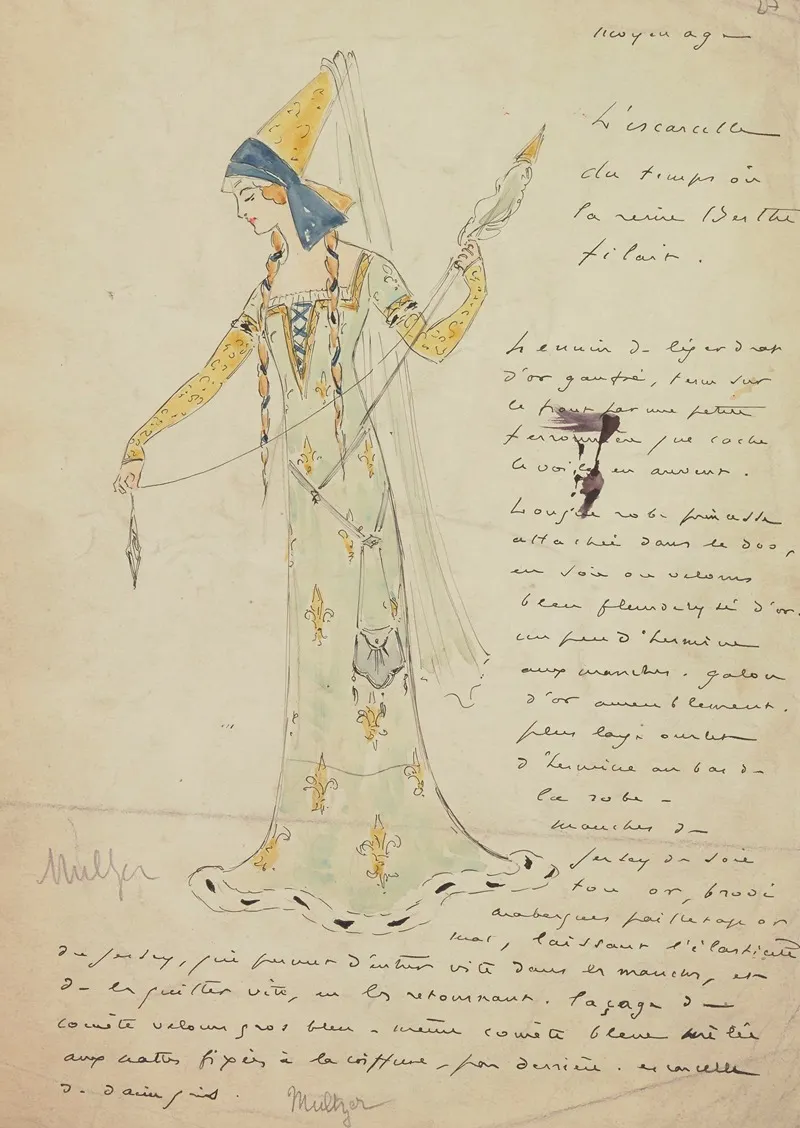 27
moyen age
L'escarcelle
du temps où
la reine Berthe
filait.
Hennin de léger drap
d'or gaufré, tenu sur
le front par une petite
ferronnière que cache
le voile en auvent.
Longue robe princesse
attachée dans le dos,
en soie ou velours
bleu fleurdelysé d'or.
un peu d'hermine
aux manches. galon
d'or ameublement.
plus large ourlet
d'hermine au bas de
la robe -
manches de
jersey de soie
ton or, brodé
arabesques pailletage or
mat, laissant l'élasticité
du jersey, qui permet d'entrer vite dans les manches, et
de les quitter vite, en les retournant. laçage de
comète velours gros bleu - même comète bleue mêlée
aux nattes fixées à la coiffure, par derrière. escarcelle
de daim gris.
Multzer
Multzer